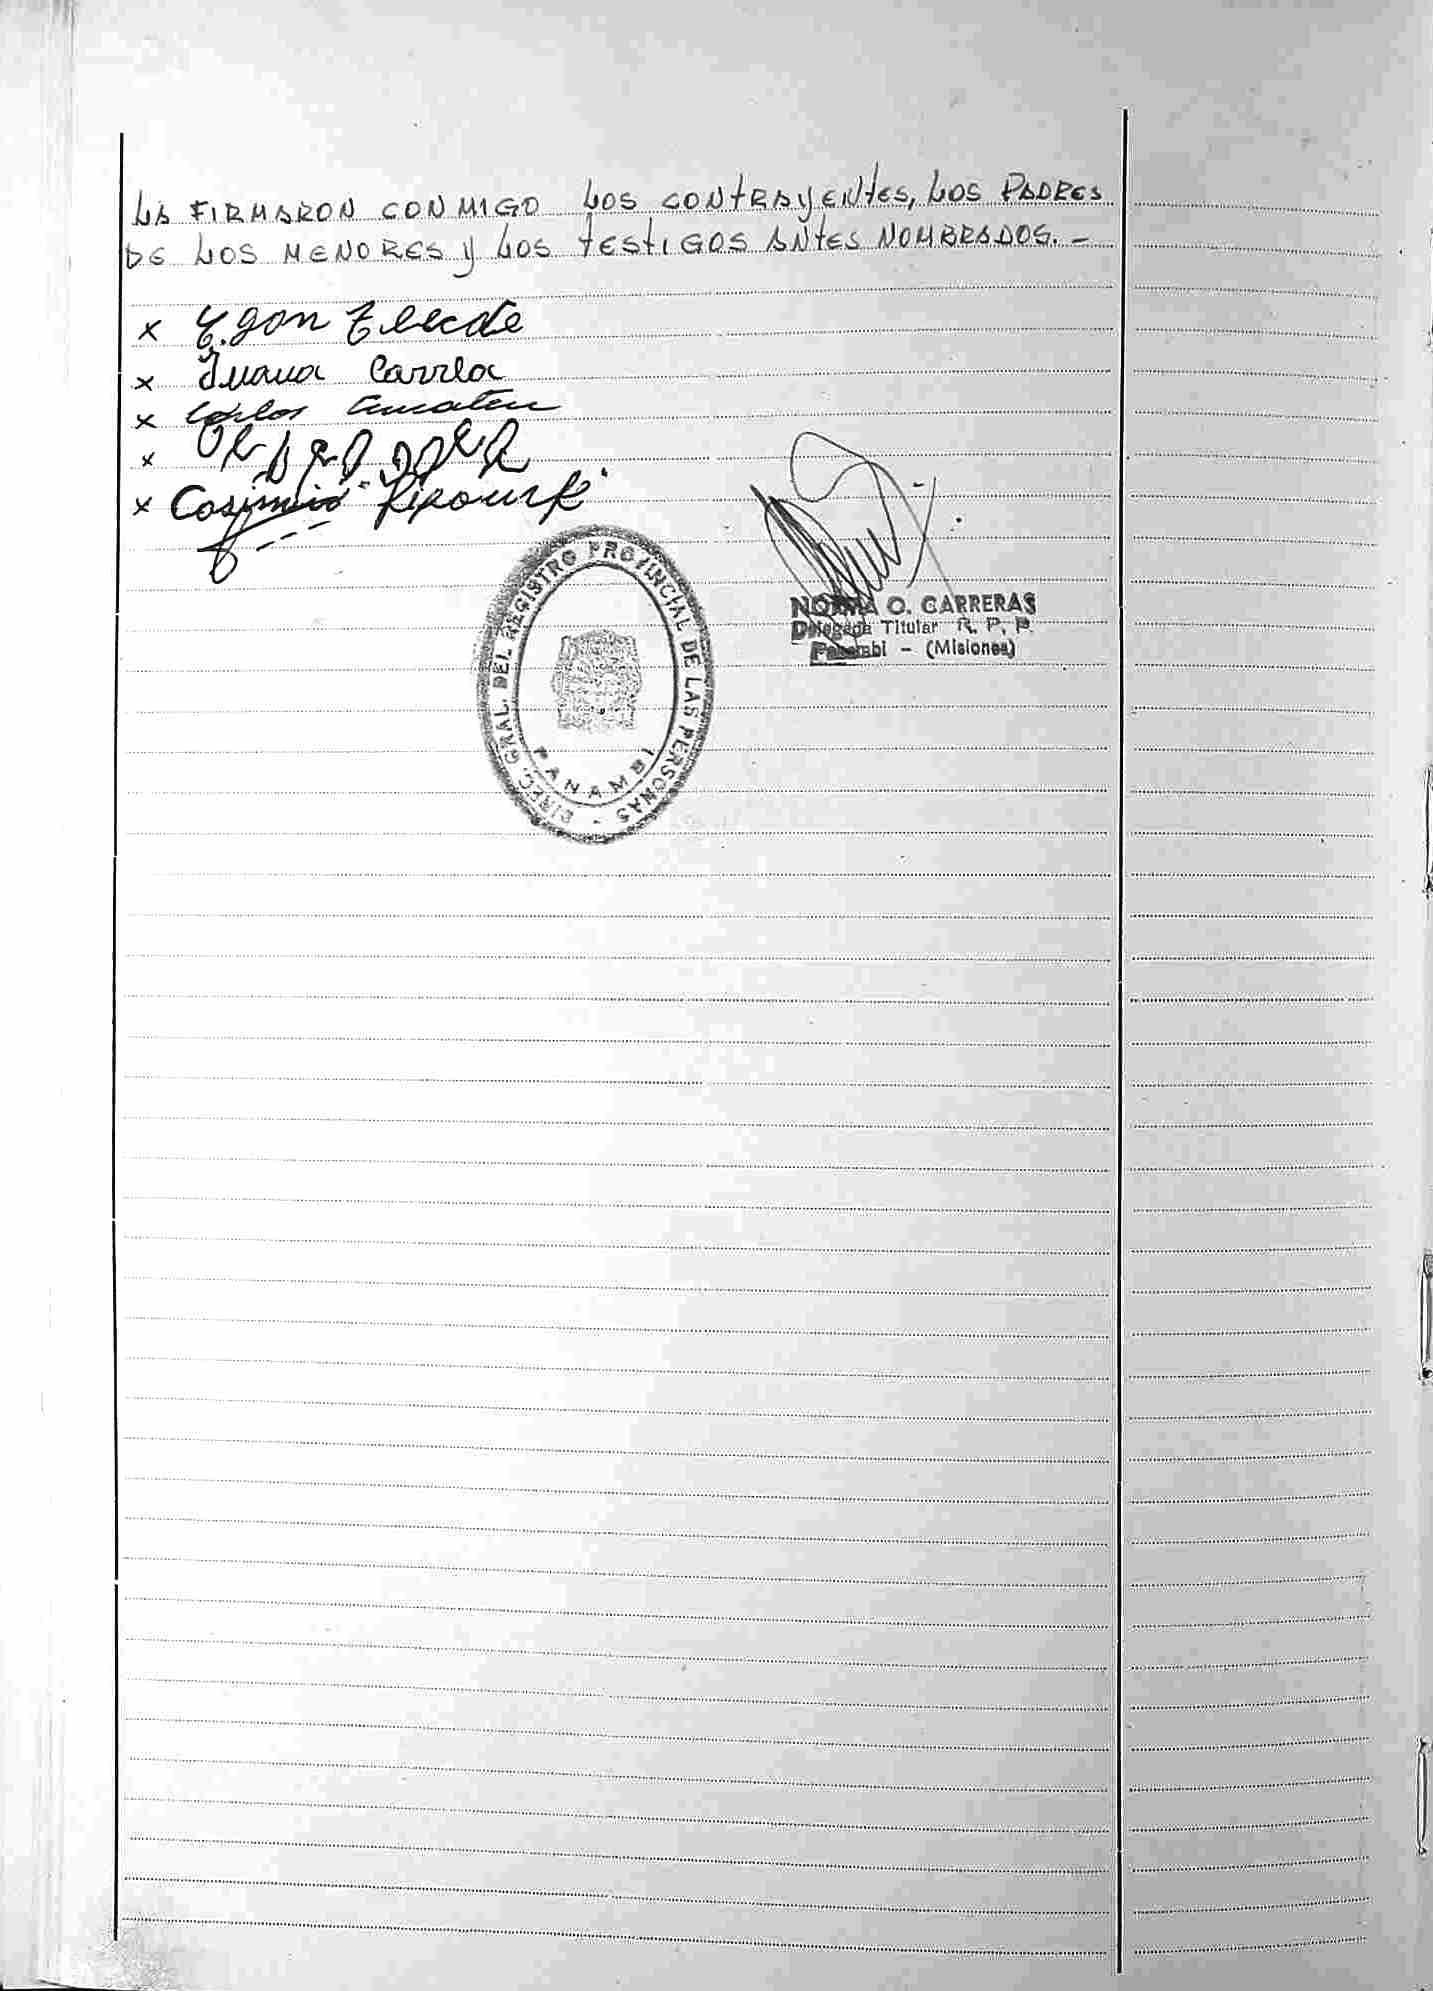 LA FIRMARON CONMIGO LOS CONTRAYENTES, LOS PADRES
DE LOS MENORES Y LOS TESTIGOS ANTES NOMBRADOS. -
x Egon
x Juana Carrla
x Carlos
x
x Casimiro
DIREC. GRAL. DEL REGISTRO PROVINCIAL DE LAS PERSONAS -
PANAMBI
NORMA O. CARRERAS
Delegada Titular R. P. P.
Panambi - (Misiones)